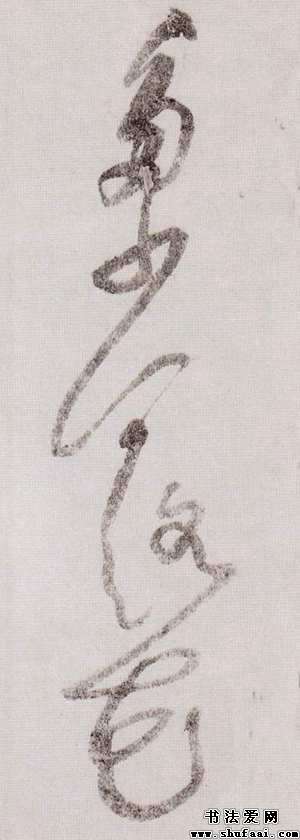 落花
书法爱网
www.shufaai.com